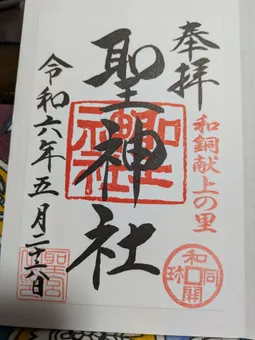 奉拝
和銅献上の里
和同開珎
聖神社
聖神社
令和六年五月二十六日